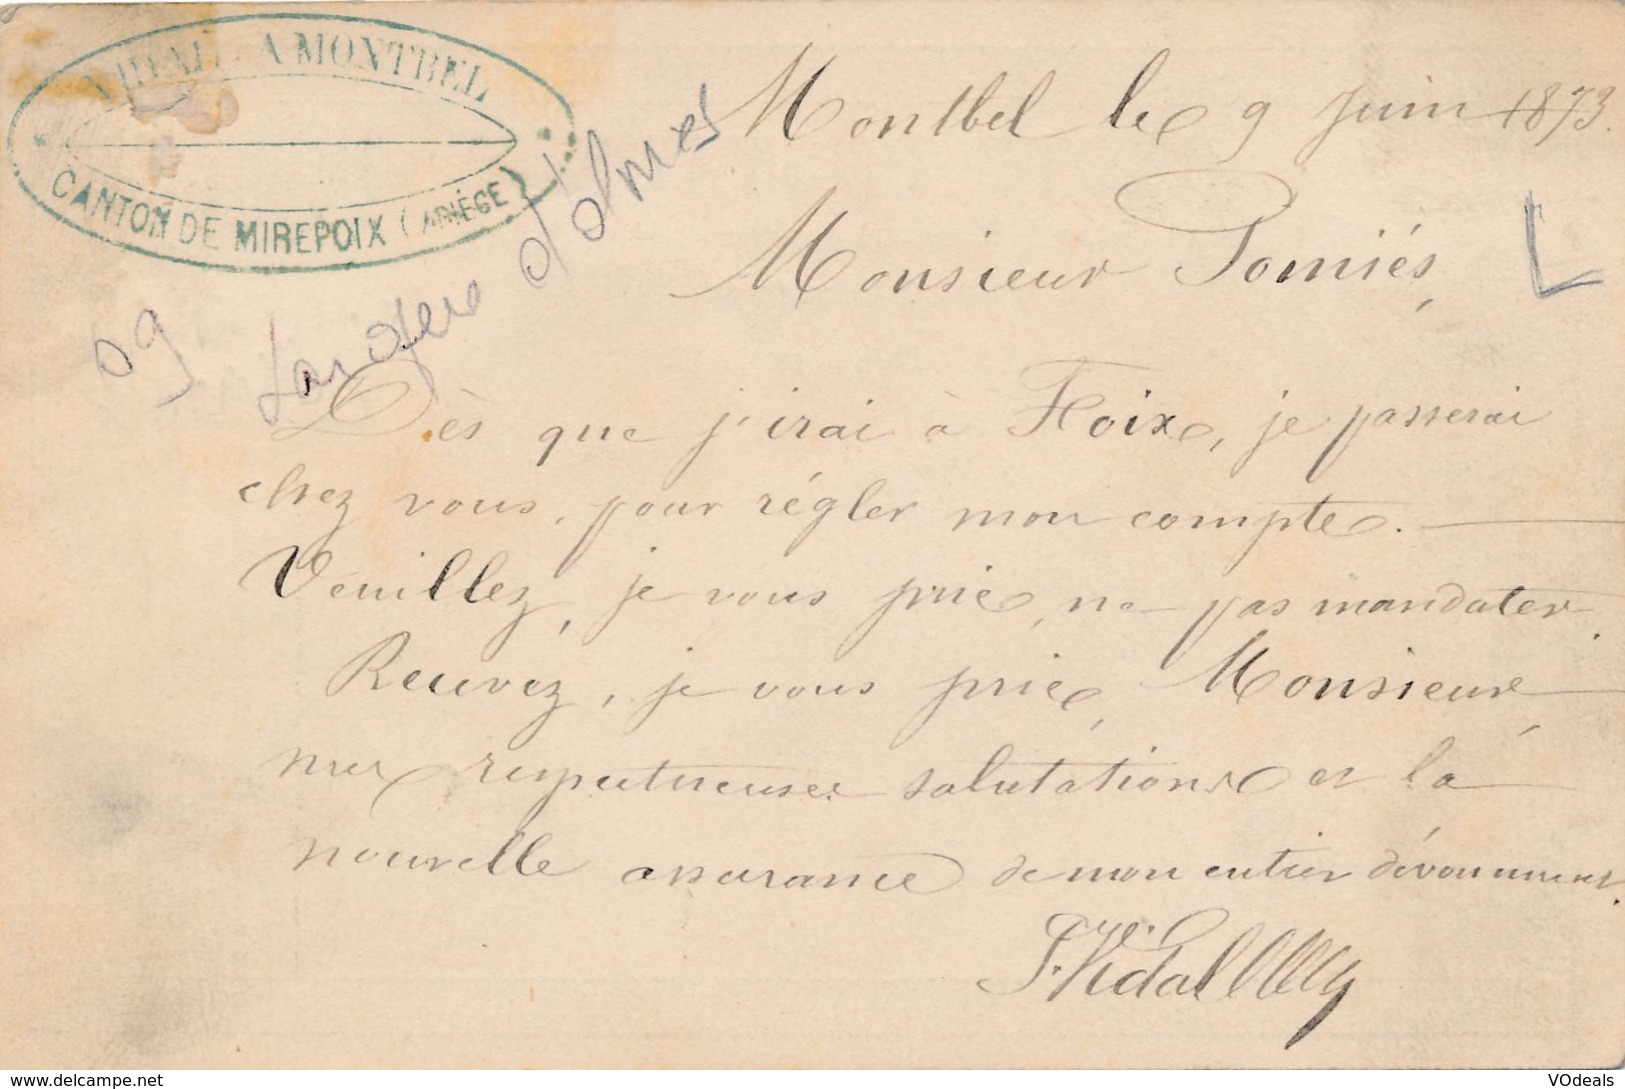 VIDAL A MONTBEL
CANTON DE MIREPOIX (ARIÈGE)
09
d'olmes
Montbel le 9 Juin 1873.
Monsieur Pomiés,
Dès que j'irai à Foix, je passerai
chez vous, pour régler mon compte.
Veuillez, je vous prie, ne pas mandater.
Recevez, je vous prie, Monsieur,
mes respectueuses salutations et la
nouvelle assurance de mon entier dévouement.
Vidal
www.delcampe.net
VOdeals